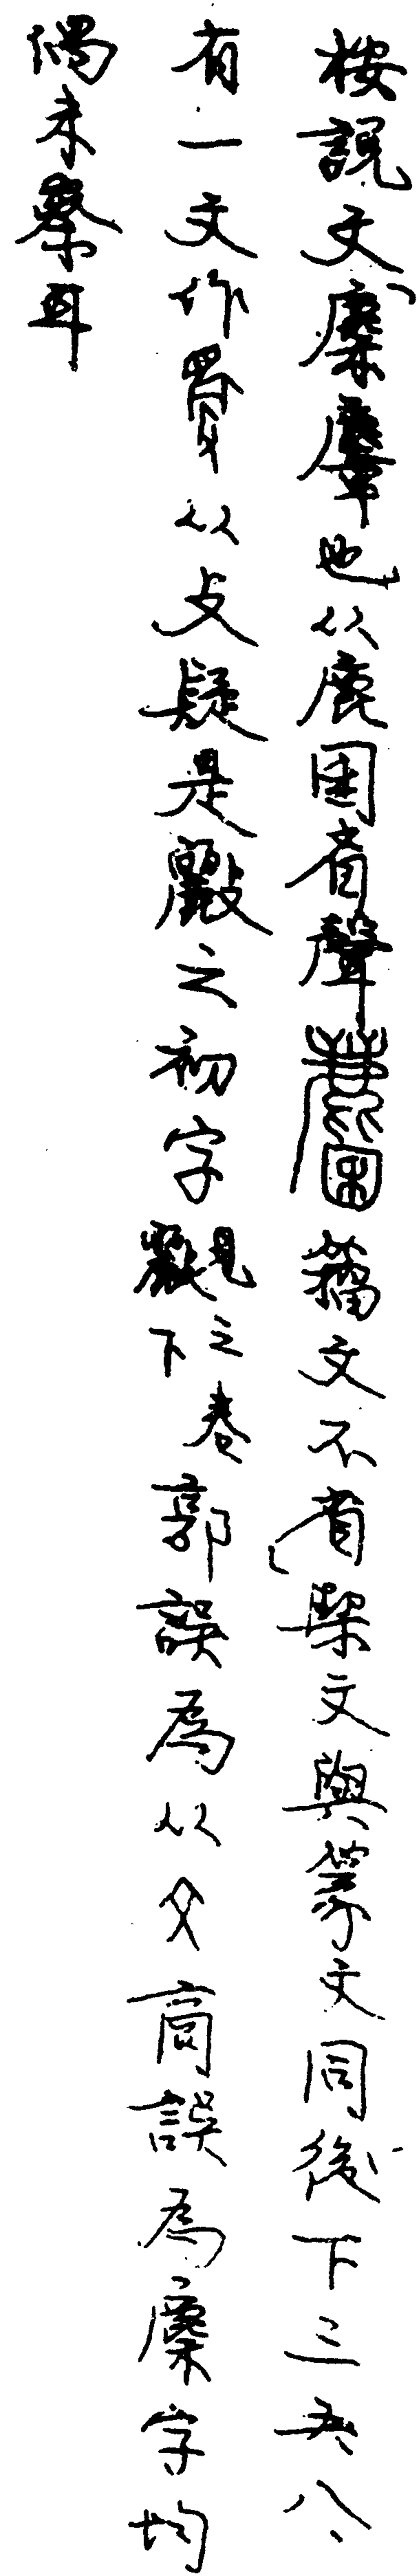 按說文「麇麞也从鹿囷省聲 籀文不省」栔文與篆文同後下三五、八、
有一文作从攴疑是之初字觀見下之卷郭誤為从文商誤為麇字均
偶未察耳